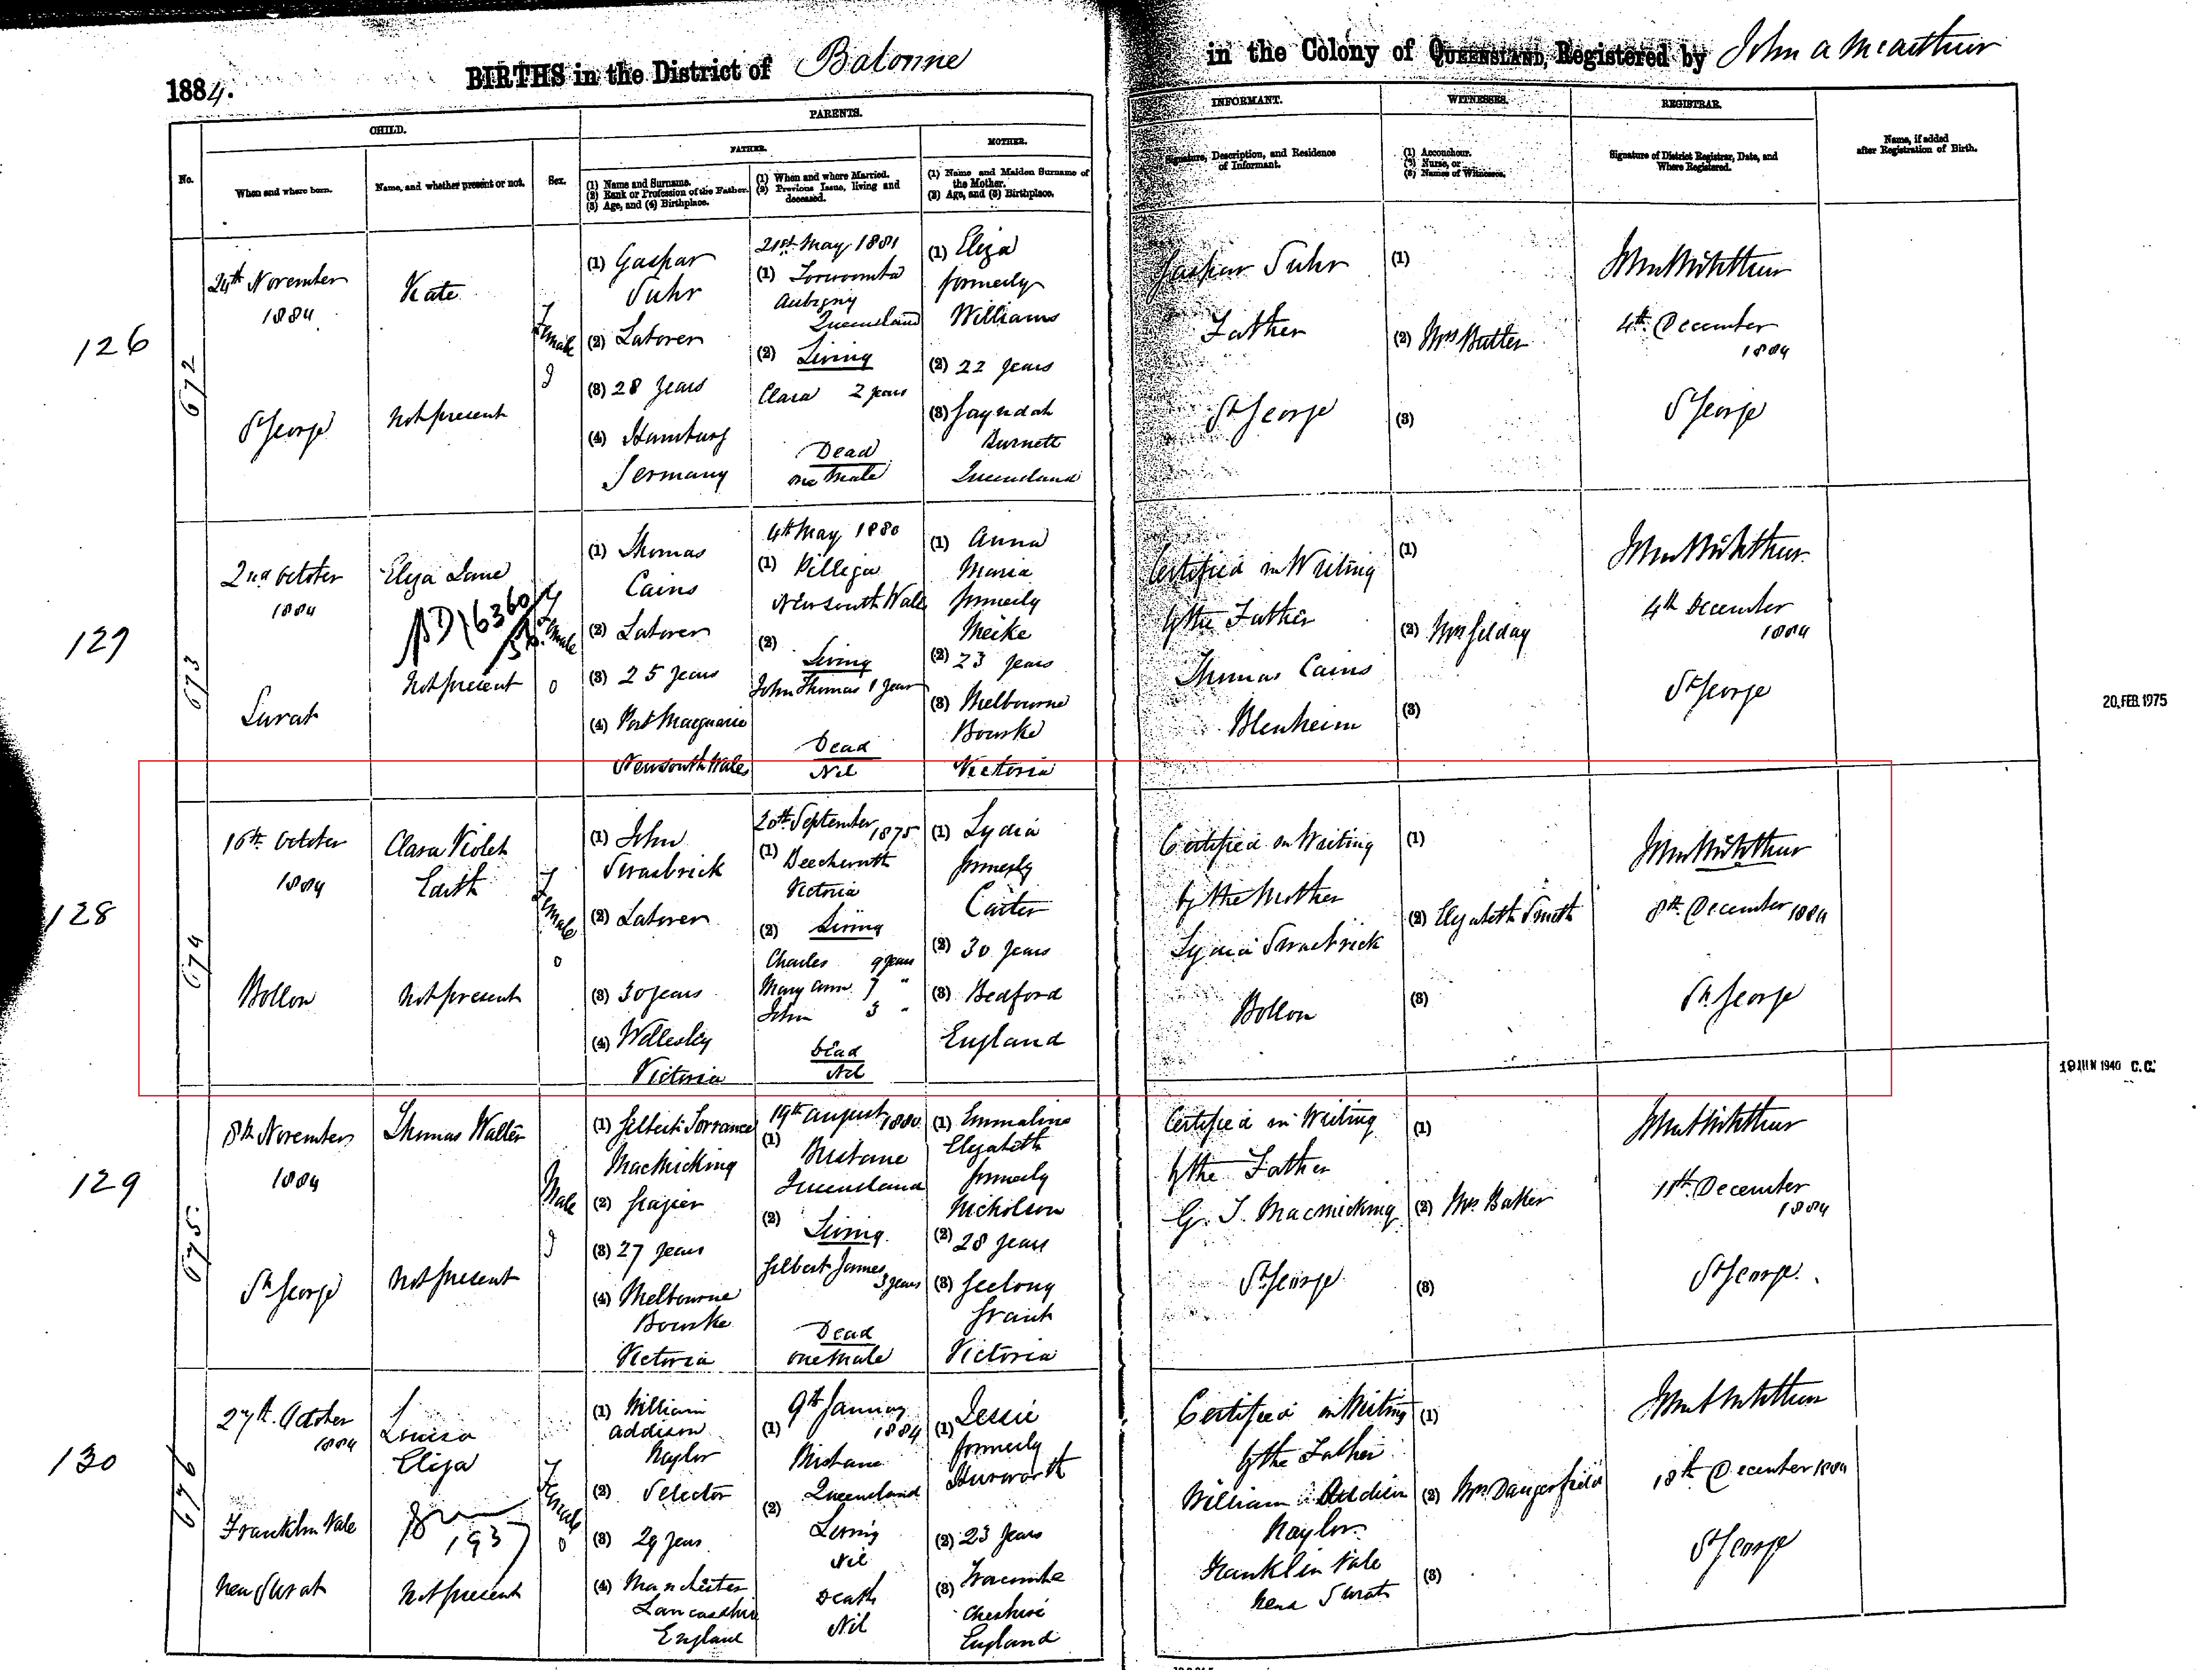 1884.
BIRTHS in the District of Balonne
in the Colony of QUEENSLAND, Registered by John A McArthur
No.
CHILD.
When and where born.
Name, and whether present or not.
Sex.
PARENTS.
FATHER.
(1) Name and Surname.
(2) Rank or Profession of the Father.
(3) Age, and (4) Birthplace.
(1) When and where Married.
(2) Previous Issue, living and
deceased.
MOTHER.
(1) Name and Maiden Surname of
the Mother.
(2) Age, and (3) Birthplace.
INFORMANT.
Signature, Description, and Residence
of Informant.
WITNESSES.
(1) Accoucheur.
(2) Nurse, or
(3) Names of Witnesses.
REGISTRAR.
Signature of District Registrar, Date, and
Where Registered.
Name, if added
after Registration of Birth.
126
672
24th November
1884
St George
Kate
Not present
Female
(1) Gaspar
Suhr
(2) Laborer
(3) 28 years
(4) Hamburg
Germany
21st May 1881
(1) Toowoomba
Aubigny
Queensland
(2) Living
Clara 2 years
Dead
one Male
(1) Eliza
formerly
Williams
(2) 22 years
(3) Gayndah
Burnett
Queensland
Gaspar Suhr
Father
St George
(1)
(2) Mrs Butler
(3)
4th December
1884
St George
127
673
2nd October
1884
Surat
Eliza Jane
Not present
Female
(1) Thomas
Cains
(2) Laborer
(3) 25 years
(4) Port Macquarie
New South Wales
4th May 1880
(1) Pilliga
New South Wales
(2)
Living
John Thomas 1 year
Dead
Nil
(1) Anna
Maria
formerly
Meike
(2) 23 years
(3) Melbourne
Bourke
Victoria
Certified in Writing
by the Father
Thomas Cains
Blenheim
(1)
(2) Mrs Felday
(3)
4th December
1884
St George
20. FEB. 1975
128
674
16th October
1884
Bollon
Clara Violet
Edith
Not present
Female
(1) John
Swasbrick
(2) Laborer
(3) 30 years
(4) Wellesley
Victoria
20th September
1875
(1) Beechworth
Victoria
(2) Living
Charles 9 years
Mary Ann 7 "
John 3 "
Dead
Nil
(1) Lydia
formerly
Carter
(2) 30 years
(3) Bedford
England
Certified in Writing
by the Mother
Lydia Swasbrick
Bollon
(1)
(2) Elizabeth Smith
(3)
8th December 1884
St George
1940 C.C.
129
675
8th November
1884
St George
Thomas Walter
Not present
Male
(1) Gilbert Torrance
MacMicking
(2) Grazier
(3) 27 years
(4) Melbourne
Bourke
Victoria
19th August 1880
(1)
Brisbane
Queensland
(2)
Living
Gilbert James
3 years
Dead
one Male
(1) Emmaline
Elizabeth
formerly
Nicholson
(2) 28 years
(3) Geelong
Grant
Victoria
Certified in Writing
by the Father
G. T. Macmicking
St George
(1)
(2) Mrs Baker
(3)
11th December
1884
St George
130
676
27th October
1884
Franklin Vale
near Surat
Louisa
Eliza
Not present
Female
(1) William
Addison
Naylor
(2) Selector
(3) 29 years
(4) Manchester
Lancashire
England
9th January
(1) 1884
Brisbane
Queensland
(2)
Living
Nil
Death
Nil
(1) Jessie
formerly
(2) 23 years
(3)
Cheshire
England
Certified in Writing
by the Father
William Addison
Naylor
Franklin Vale
near Surat
(1)
(2) Mrs Dangerfield
(3)
18th December 1884
St George